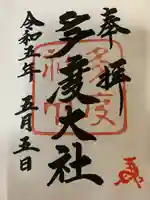 奉拝
多度大社
令和五年 五月五日